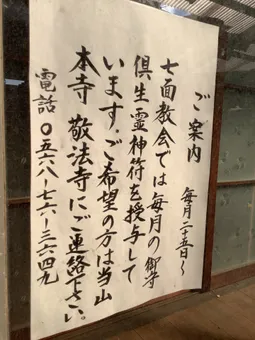 ご案内
毎月二十五日〜
七面教会では毎月の御守
倶生霊神符を授与して
います。ご希望の方は当山
本寺 敬法寺にご連絡下さい。
電話〇五六八-七六-三六四九